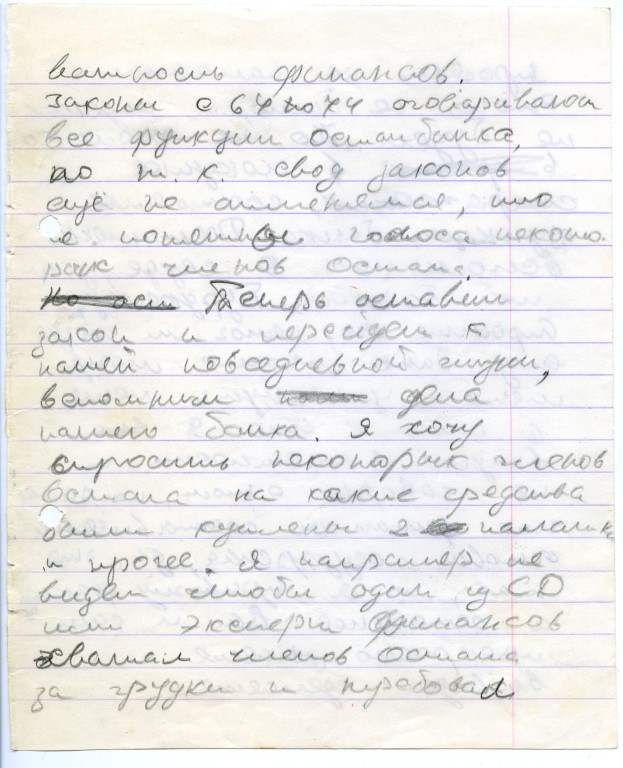 финансов.
Законы с 64 по 74 оговаривают
все функции Останбанка,
но т.к свод законов
ещё не отменялся, то
не понятны голоса некото-
рых членов Остана.
Теперь оставим
закон и перейдем к
нашей повседневной жизни,
вспомним дела
нашего банка. Я хочу
спросить некоторых членов
Остана на какие средства
были куплены 2 палатки
и прочее. Я например не
видел чтобы один из CD
или эксперт финансов
хватал членов Остана
за грудки и требовал